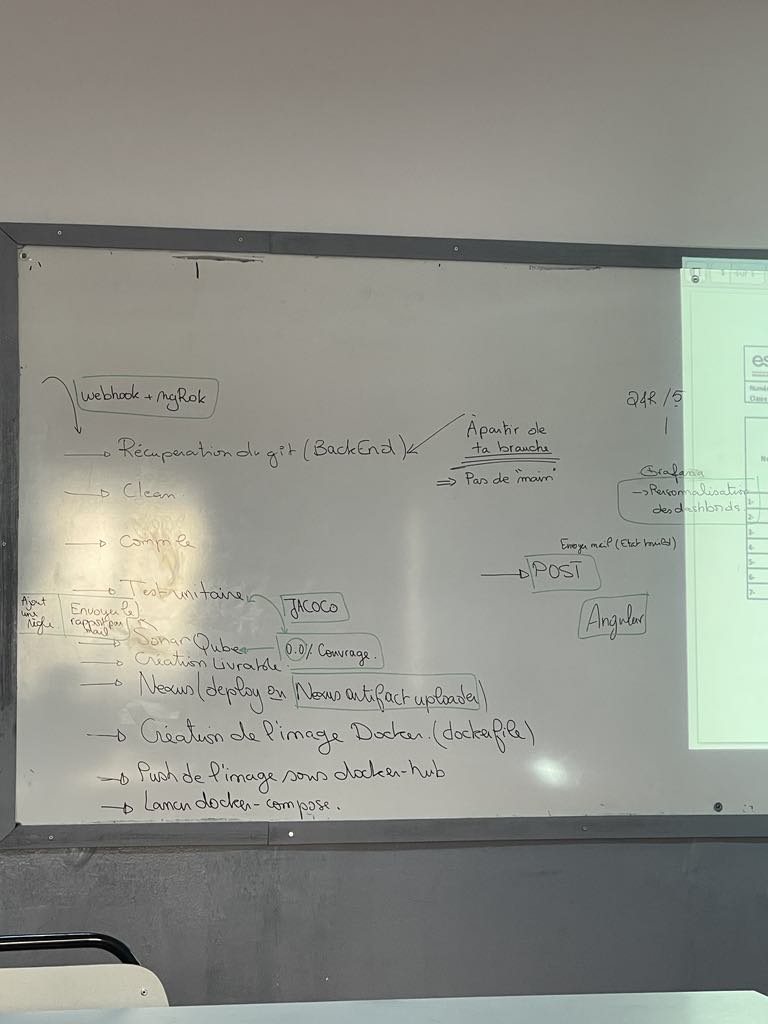 webhook + ngRok
Récuperation du git (BackEnd)
À partir de
ta branche
⇒ Pas de "main"
Clean
Compile
Test unitaire
JACOCO
Ajout
une
règle
Envoyer le
rapport par
mail
Sonar Qube
0.0% Couvrage.
Création Livrable.
Nexus (deploy ou Nexus artifact uploader)
Création de l'image Docker. (dockerfile)
Push de l'image sous docker-hub
Lancer docker-compose.
Grafana
→ Personnalisation
des dashbords
Envoyer mail (Etat build)
POST
Angular
es